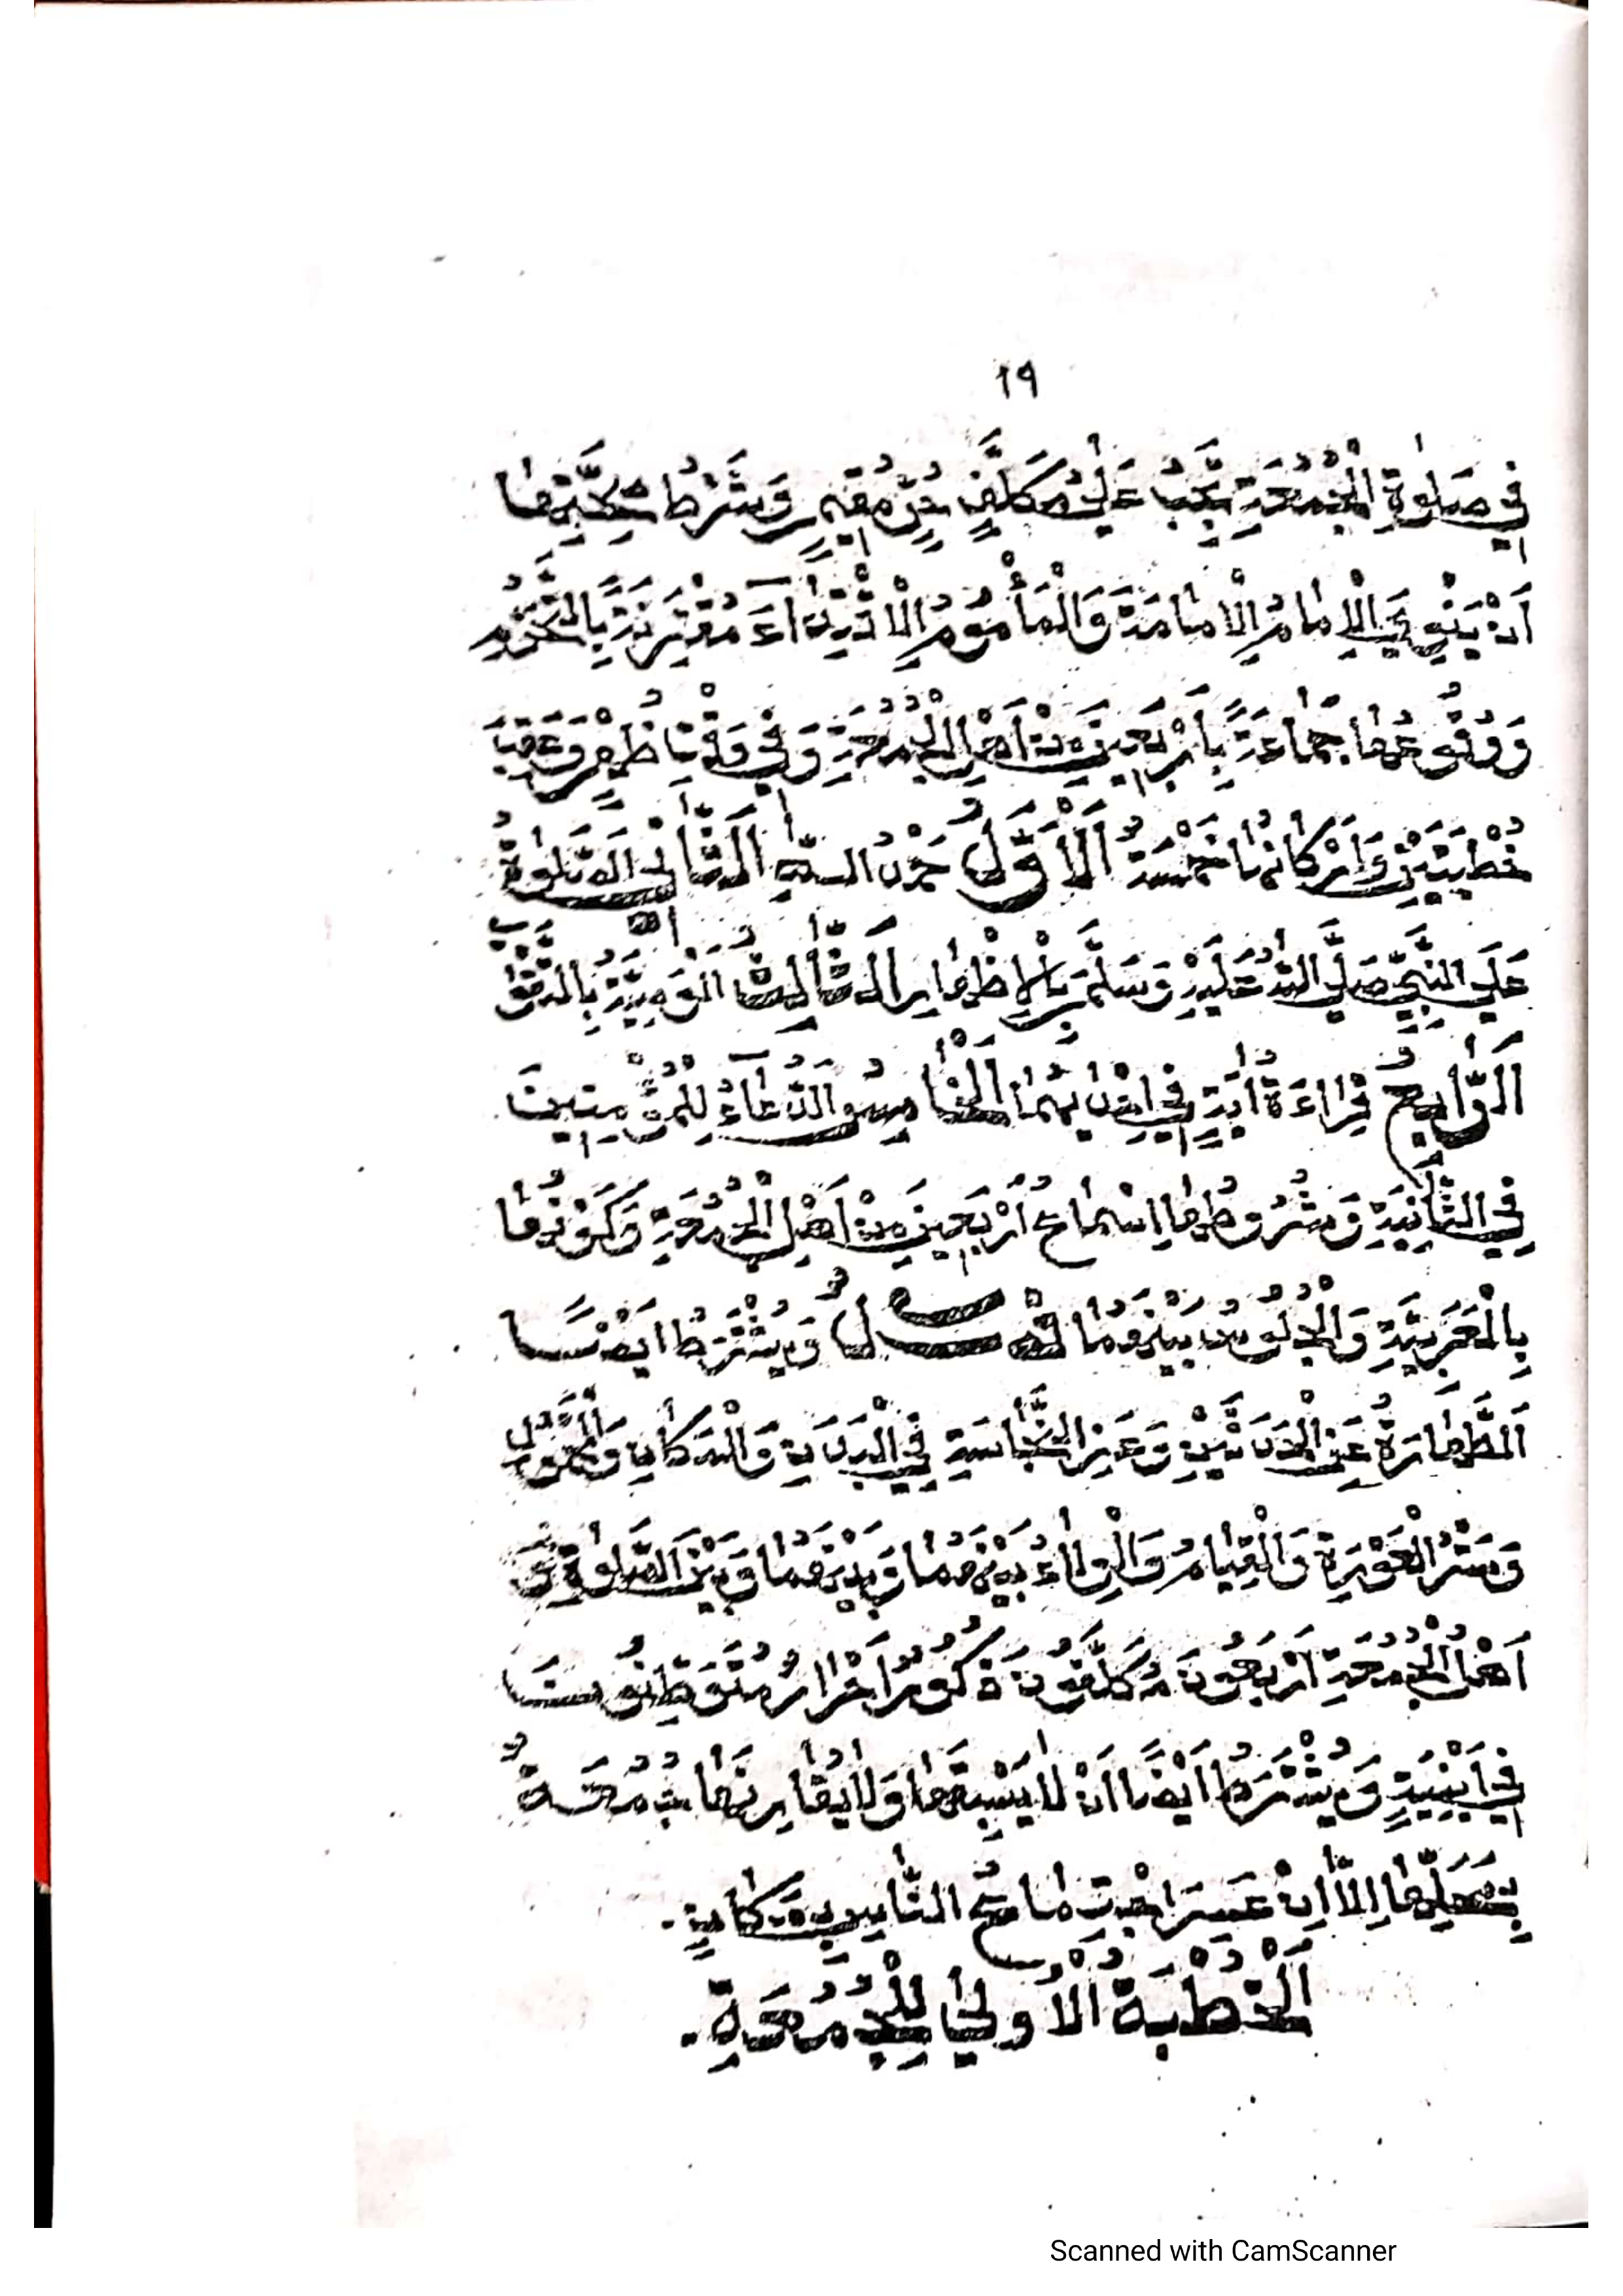 ١٩
فِي صَلٰوةِ الْجُمُعَةِ تَجِبُ عَلٰى مُكَلَّفٍ حُرٍّ مُقِيمٍ وَشَرْطُ صِحَّتِهَا
اَنْ يَنْوِيَ الْاِمَامُ الْاِمَامَةَ وَالْمَأْمُومُ الْاِقْتِدَاءَ مُقْتَرِنَةً بِالتَّحَرُّمِ
وَوُقُوعُهَا جَمَاعَةً بِاَرْبَعِينَ مِنْ اَهْلِ الْجُمُعَةِ وَفِي وَقْتِ ظُهْرٍ وَعَقِبَ
خُطْبَتَيْنِ وَاَرْكَانُهَا خَمْسَةٌ اَلْاَوَّلُ حَمْدُ اللّٰهِ اَلثَّانِي اَلصَّلٰوةُ
عَلَى النَّبِيِّ صَلَّى اللّٰهُ عَلَيْهِ وَسَلَّمَ بِالْاِظْهَارِ اَلثَّالِثُ الْوَصِيَّةُ بِالتَّقْوٰى
اَلرَّابِعُ قِرَاءَةُ اٰيَةٍ فِي اِحْدٰيهُمَا اَلْخَامِسُ اَلدُّعَاءُ لِلْمُؤْمِنِينَ
فِي الثَّانِيَةِ وَشُرُوطُهَا اِسْمَاعُ اَرْبَعِينَ مِنْ اَهْلِ الْجُمُعَةِ وَكَوْنُهَا
بِالْعَرَبِيَّةِ وَالْجُلُوسُ بَيْنَهُمَا فَصْلٌ وَيُشْتَرَطُ اَيْضًا
اَلطَّهَارَةُ عَنِ الْحَدَثَيْنِ وَعَنِ النَّجَاسَةِ فِي الْبَدَنِ وَالْمَكَانِ وَالْمَحْمُولِ
وَسَتْرُ الْعَوْرَةِ وَالْقِيَامُ وَالْوِلَاءُ بَيْنَهُمَا وَبَيْنَهُمَا وَبَيْنَ الصَّلٰوةِ وَ
اَهْلُ الْجُمُعَةِ اَرْبَعُونَ مُكَلَّفُونَ ذُكُورٌ اَحْرَارٌ مُتَوَطِّنُونَ
فِي اَبْنِيَةٍ وَيُشْتَرَطُ اَيْضًا اَنْ لَا يَسْبِقَهَا وَلَا يُقَارِنَهَا جُمُعَةٌ
بِمَحَلِّهَا اِلَّا اِنْ عَسِرَ اجْتِمَاعُ النَّاسِ بِمَكَانٍ.
اَلْخُطْبَةُ الْاُولٰى لِلْجُمُعَةِ.
Scanned with CamScanner